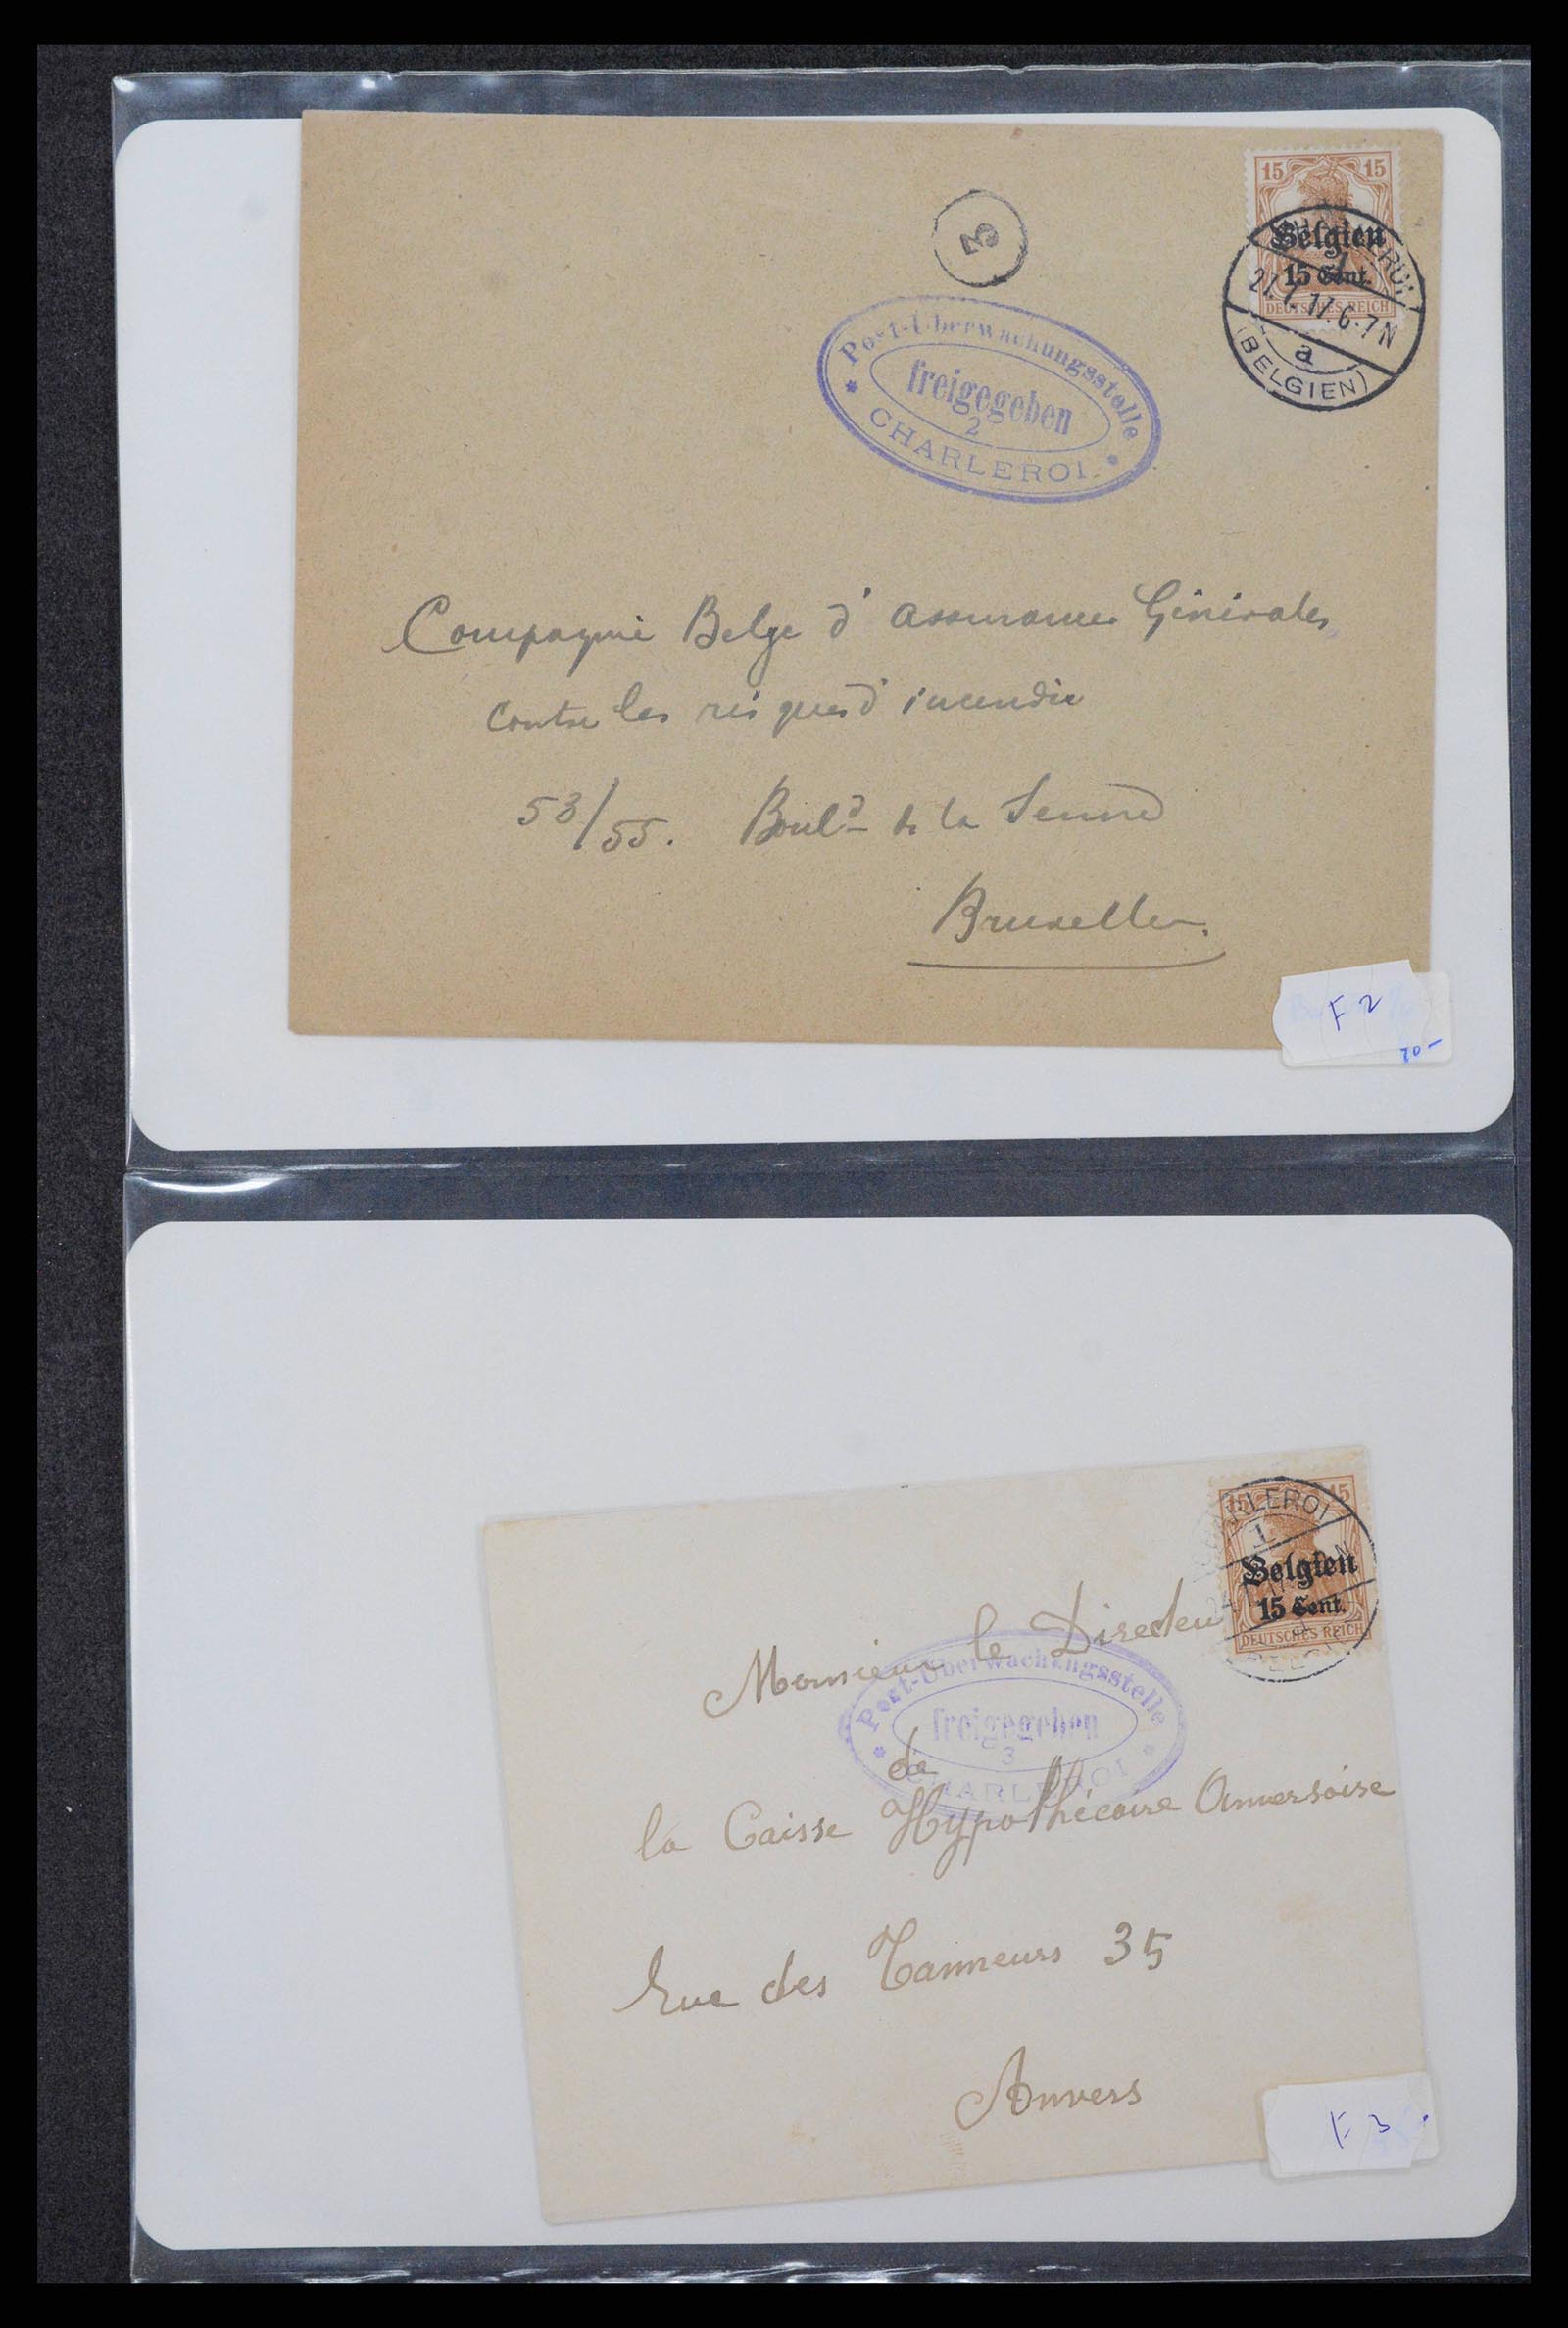 15 15
Belgien
15 Cent.
DEUTSCHES REICH
27.1.17.6-7N
a
(BELGIEN)
3
Post-Überwachungsstelle
freigegeben
2
CHARLEROI.
Compagnie Belge d'Assurances Générales
contre les risques d'incendie
53/55. Boul.d de la Senne
Bruxelles.
F 2
20-
15 15
CHARLEROI
1
Belgien
15 Cent.
DEUTSCHES REICH
Monsieur le Directeur
Post-Überwachungsstelle
freigegeben
3
CHARLEROI
de
la Caisse Hypothécaire Anversoise
Rue des Tanneurs 35
Anvers
F 3